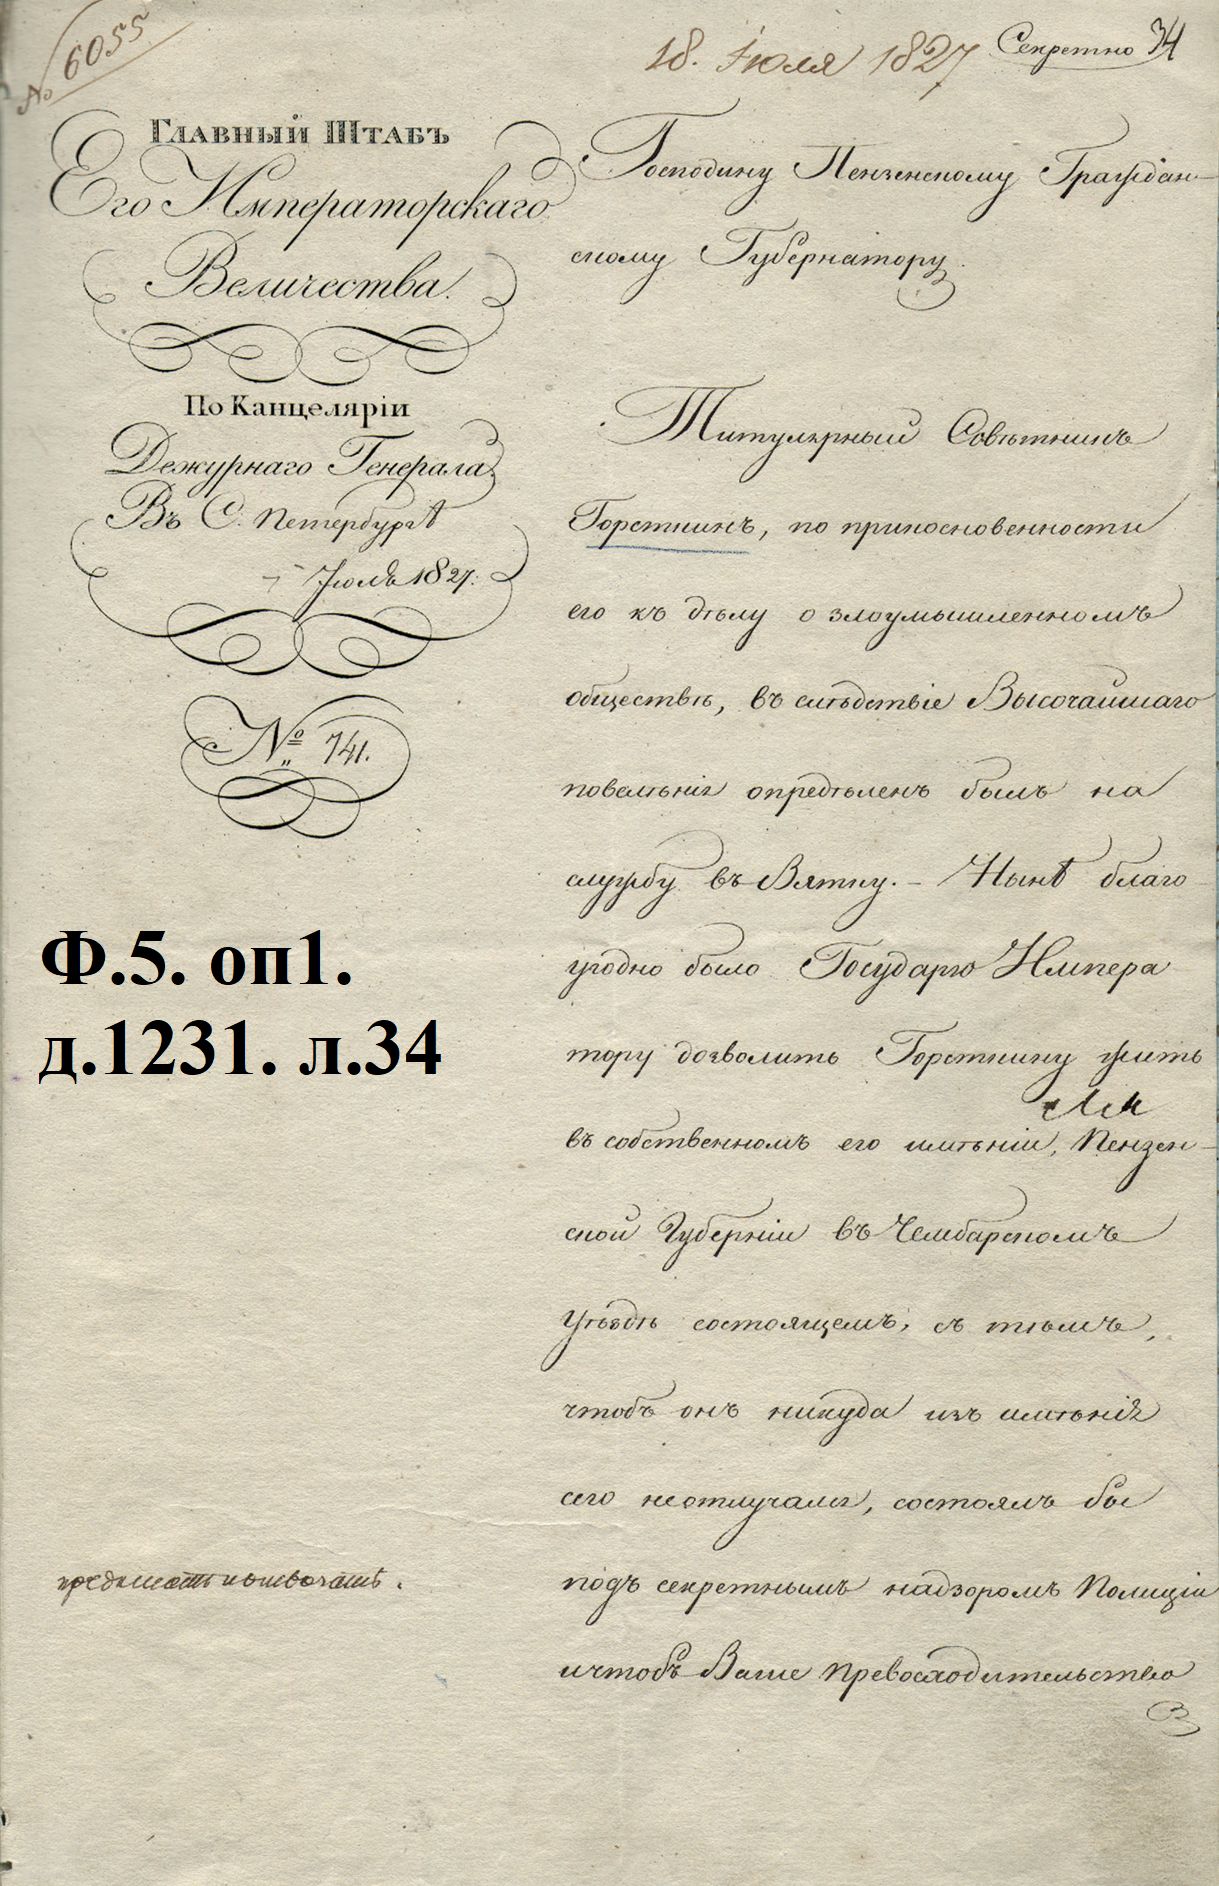 № 6055
18. Іюля 1827
Секретно 34
Главный Штабъ
Его Императорскаго
Величества.
По Канцеляріи
Дежурнаго Генерала.
Въ С. Петербургѣ
7 Іюля 1827.
№ 741.
Господину Пензенскому Граждан-
скому Губернатору.
Титулярный Совѣтникъ
Горсткинъ, по прикосновенности
его къ дѣлу о злоумышленномъ
обществѣ, въ слѣдствіе Высочайшаго
повелѣнія опредѣленъ былъ на
службу въ Вятку. – Нынѣ благо
угодно было Государю Импера
тору дозволить Горсткину жить
въ собственномъ его имѣніи, Пензен-
ской Губерніи въ Чембарскомъ
Уѣздѣ состоящемъ, съ тѣмъ,
чтобъ онъ никуда изъ имѣнія
сего неотлучался, состоялъ бы
подъ секретнымъ надзоромъ Полиціи
и чтобъ Ваше Превосходительство
Ф.5. оп1.
д.1231. л.34